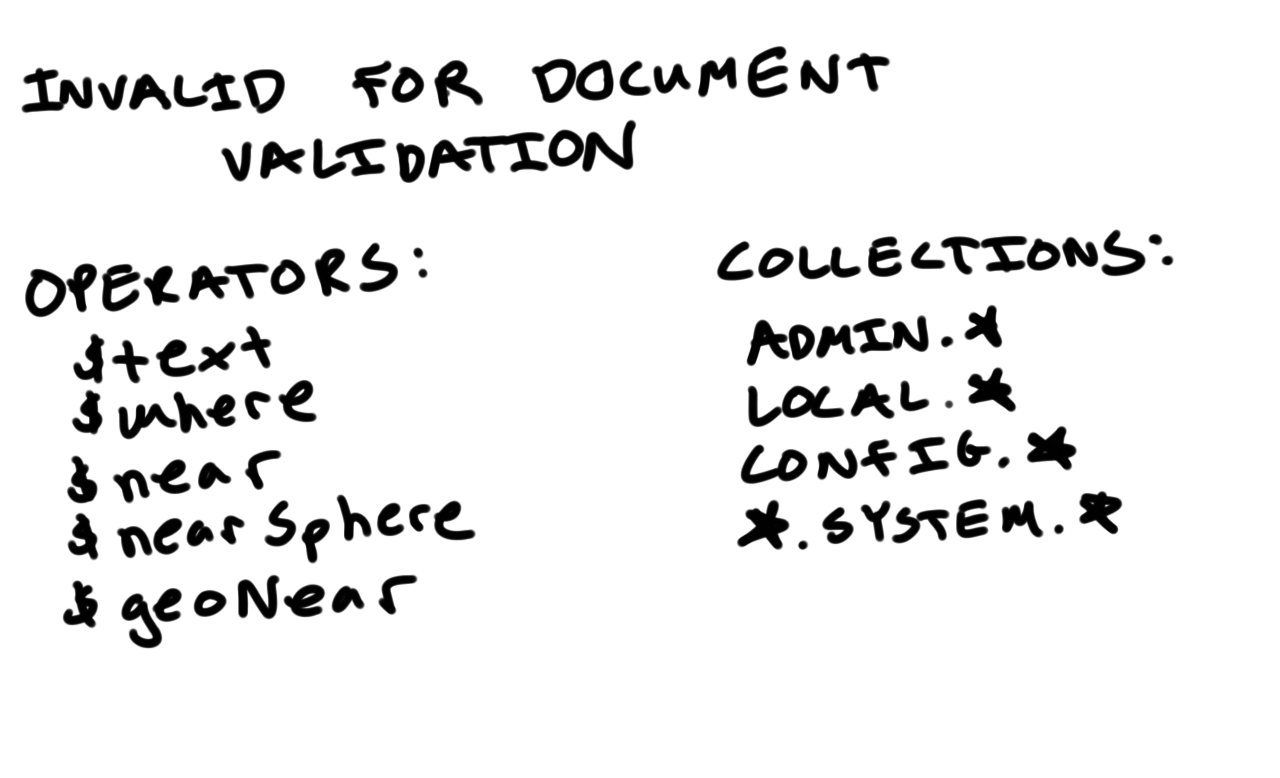 INVALID FOR DOCUMENT
VALIDATION
OPERATORS:
$text
$where
$near
$nearSphere
$geoNear
COLLECTIONS:
ADMIN.*
LOCAL.*
CONFIG.*
*.SYSTEM.*